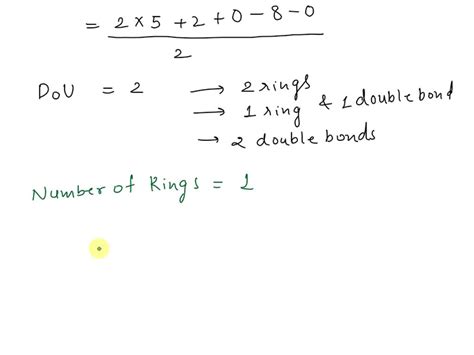 = 2 × 5 + 2 + 0 - 8 - 0
2
DoU = 2 → 2 rings
→ 1 ring & 1 double bond
→ 2 double bonds
Number of Rings = 1